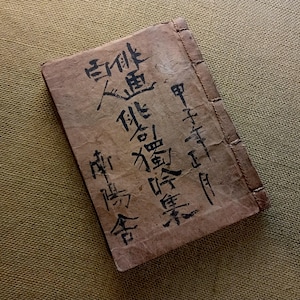 甲子年正月
俳画俳句獨吟集
百人
南陽舎